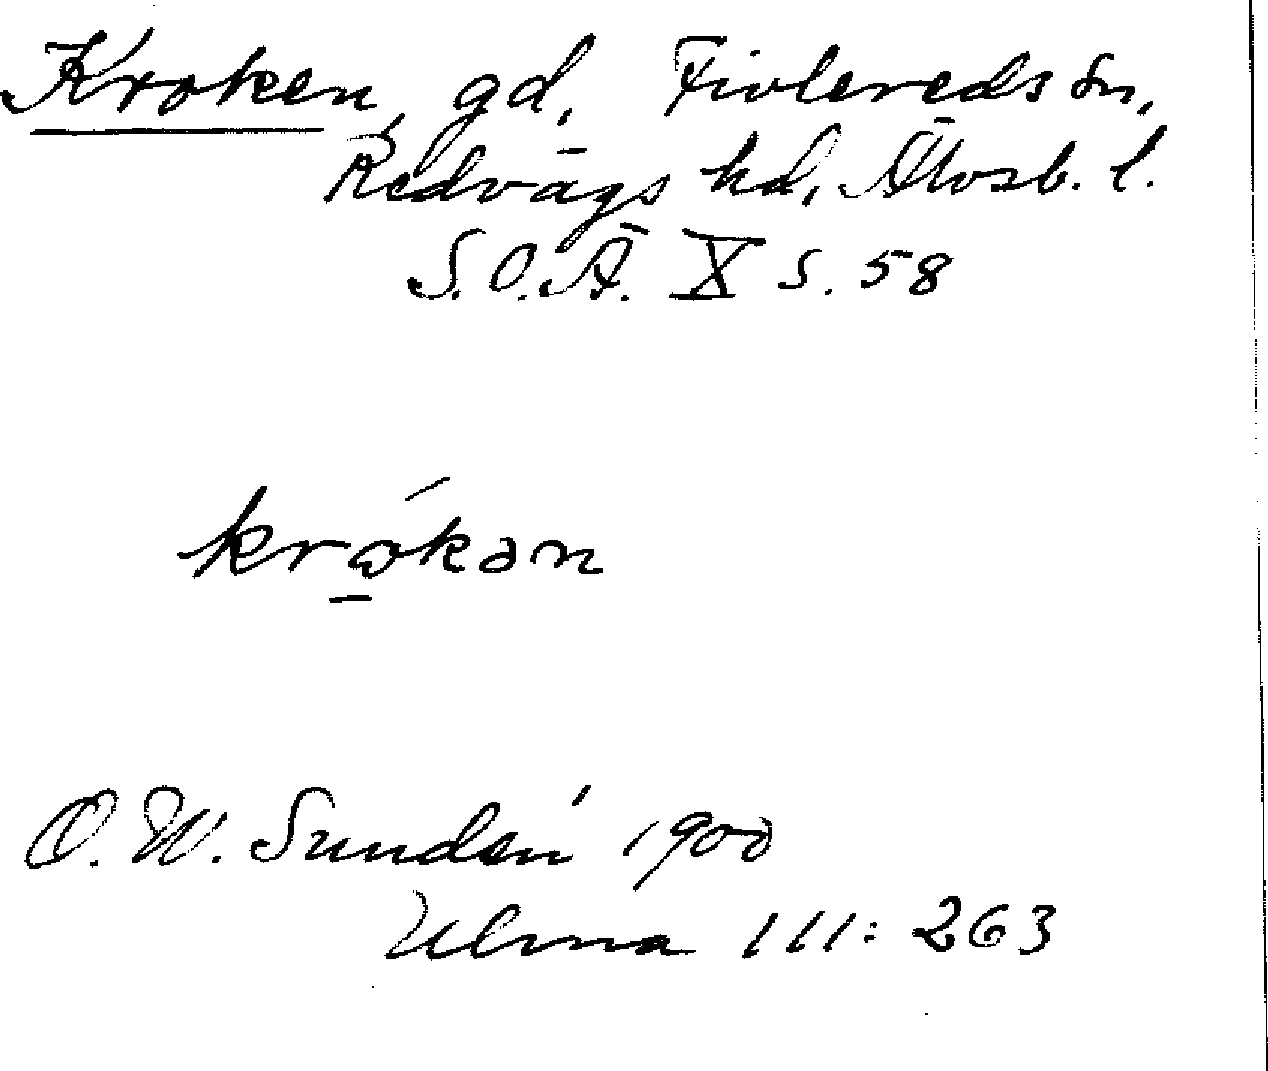 Kroken, gd, Fivlereds sn,
Redvägs hd, Älvsb. l.
S.O.Ä. X s. 58
krɷ́kən
O. W. Sundén 1900
Ulma 111: 263